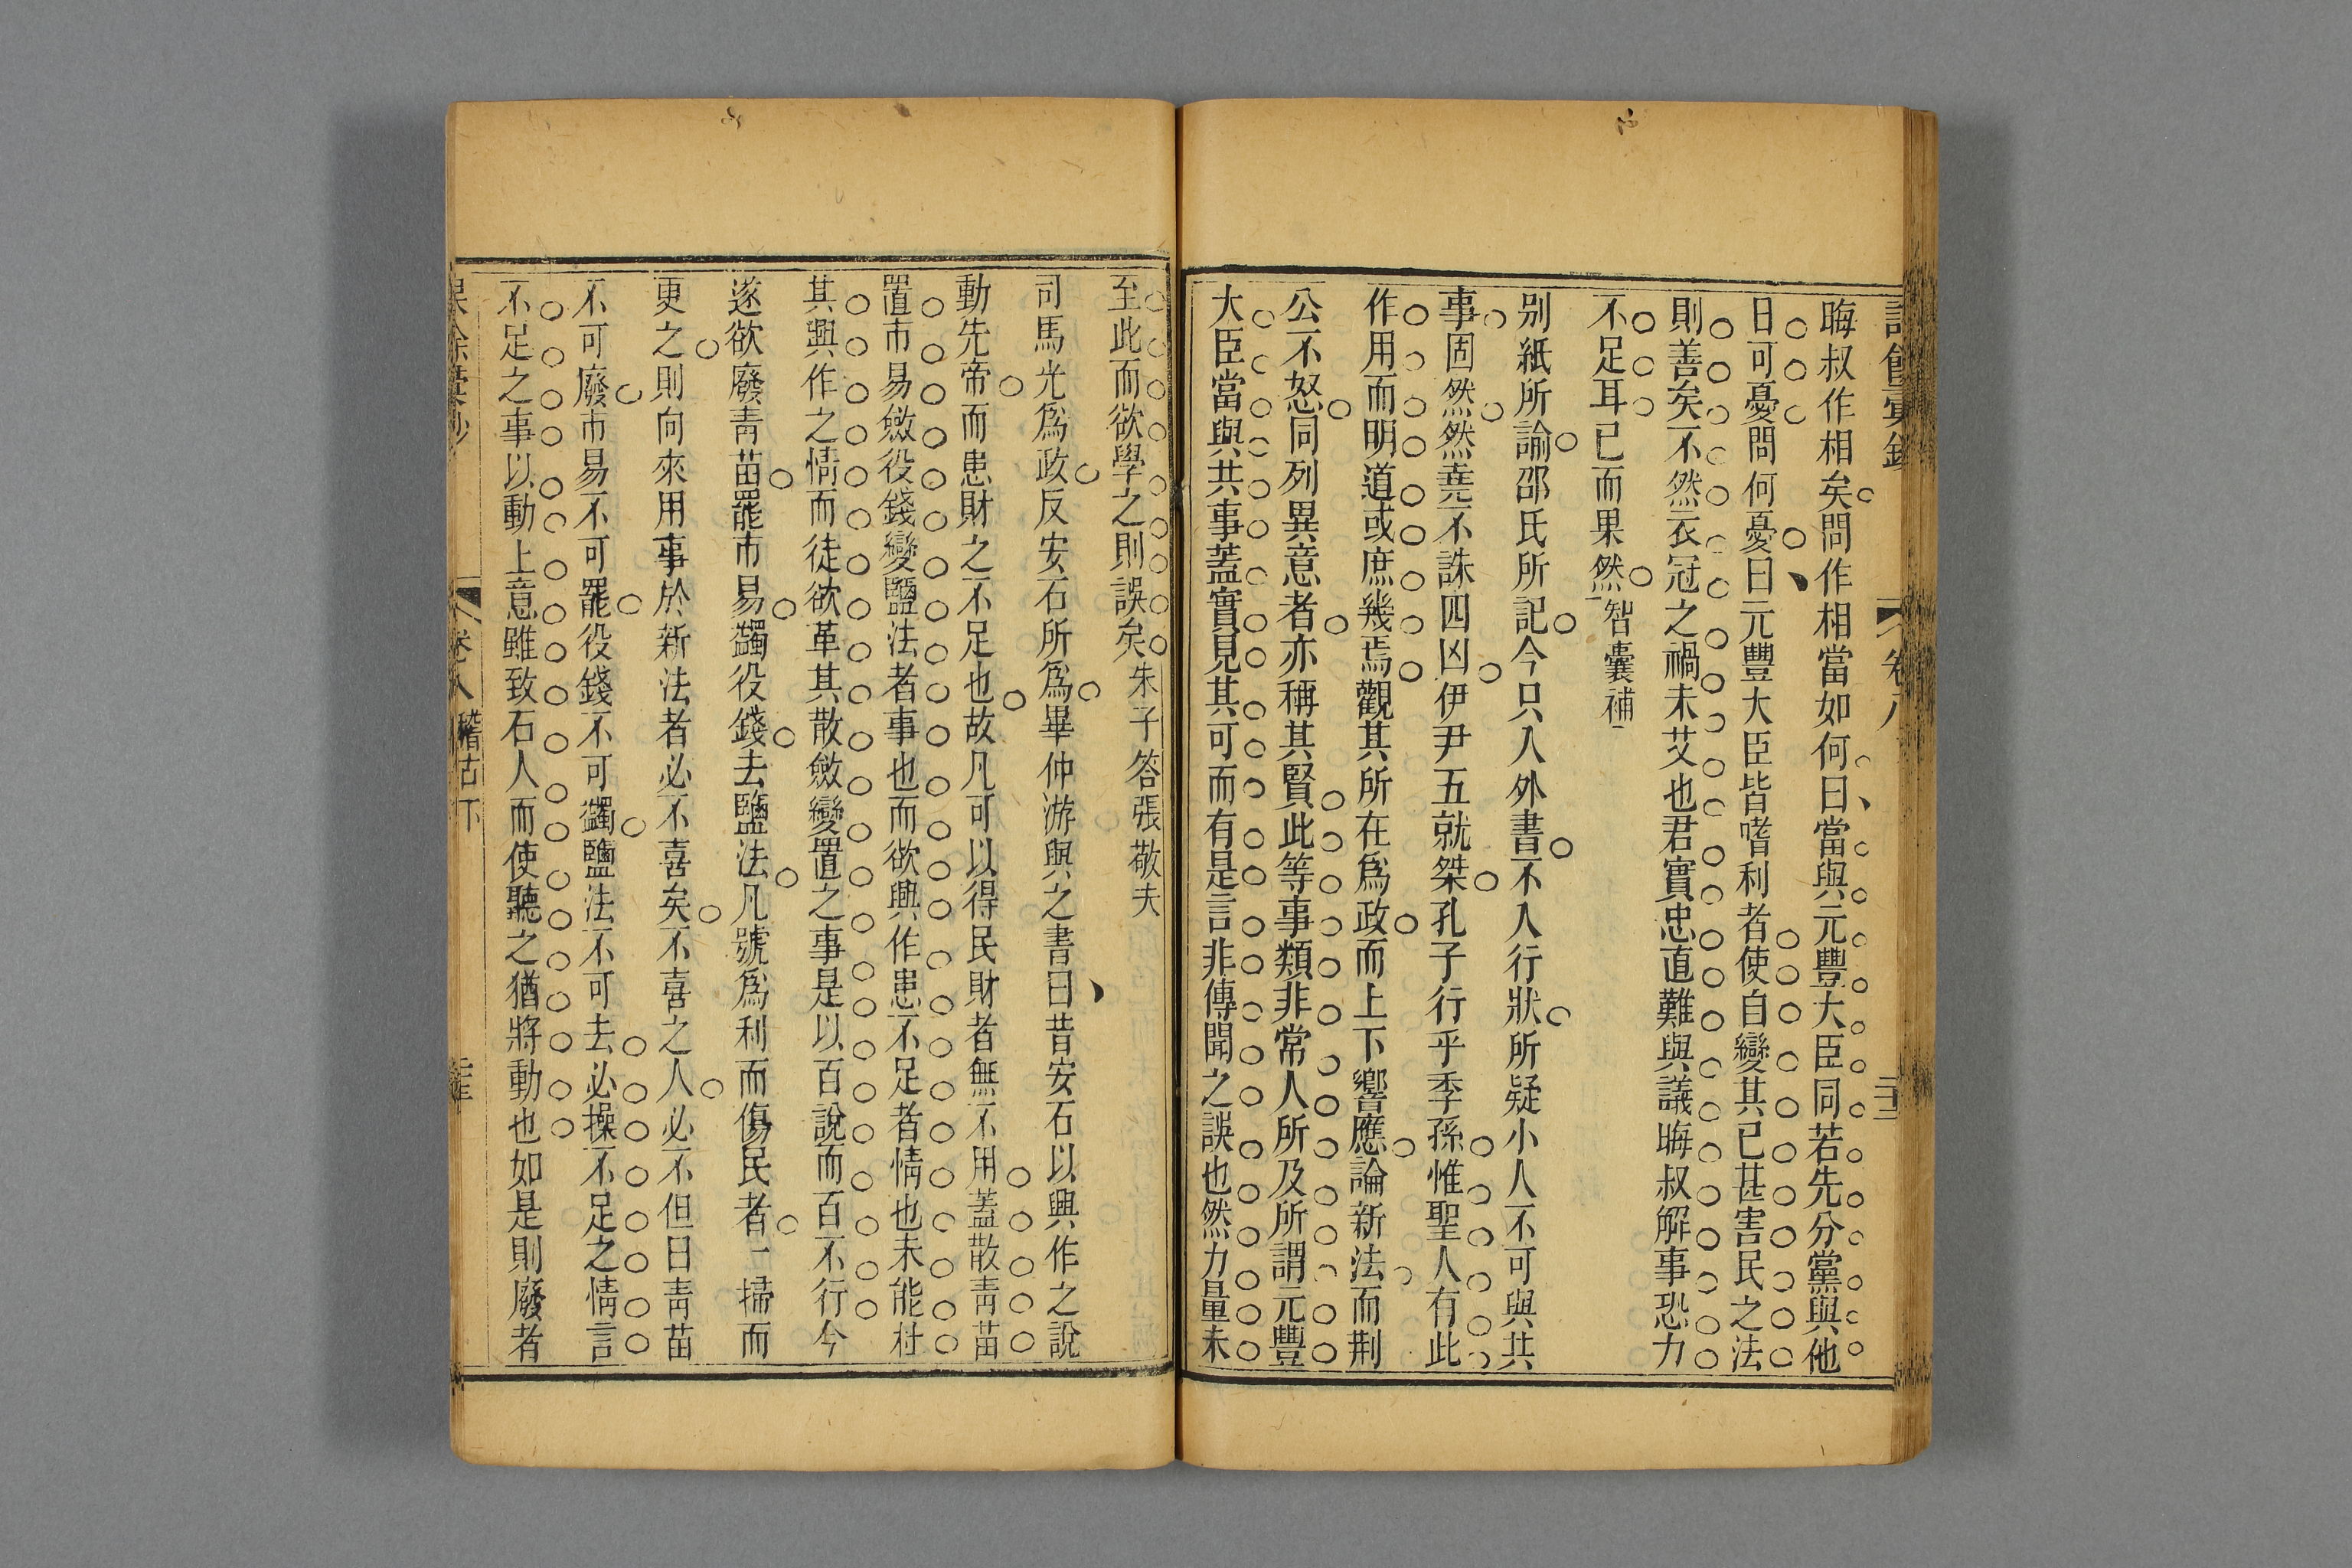 卷八
晦叔作相矣問作相當如何曰當與元豐大臣同若先分黨與他
日可憂問何憂曰元豐大臣皆嗜利者使自變其已甚害民之法
則善矣不然衣冠之禍未艾也君實忠直難與議晦叔解事恐力
不足耳已而果然智囊補
別紙所諭邵氏所記今只入外書不入行狀所疑小人不可與共
事固然然堯不誅四凶伊尹五就桀孔子行乎季孫惟聖人有此
作用而明道或庶幾焉觀其所在爲政而上下響應論新法而荆
公不怒同列異意者亦稱其賢此等事類非常人所及所謂元豐
大臣當與共事蓋實見其可而有是言非傳聞之誤也然力量未
至此而欲學之則誤矣朱子答張敬夫
司馬光爲政反安石所爲畢仲游與之書曰昔安石以興作之說
動先帝而患財之不足也故凡可以得民財者無不用蓋散靑苗
置市易斂役錢變鹽法者事也而欲興作患不足者情也未能杜
其興作之情而徒欲革其散斂變置之事是以百說而百不行今
遂欲廢靑苗罷市易蠲役錢去鹽法凡號爲利而傷民者一掃而
更之則向來用事於新法者必不喜矣不喜之人必不但曰靑苗
不可廢市易不可罷役錢不可蠲鹽法不可去必操不足之情言
不足之事以動上意雖致石人而使聽之猶將動也如是則廢者
卷八 稽古下